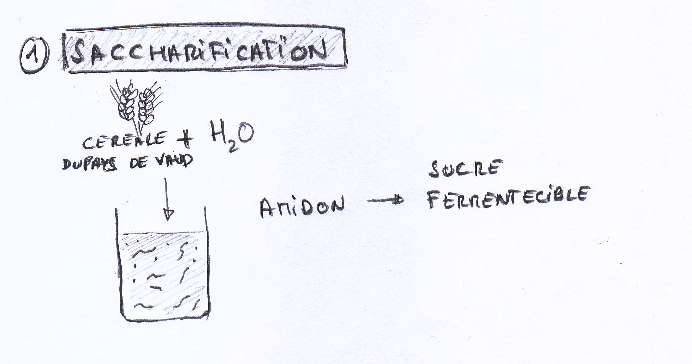 1 SACCHARIFICATION
CEREALE + H₂O
DU PAYS DE VAUD
AMIDON → SUCRE
FERMENTECIBLE